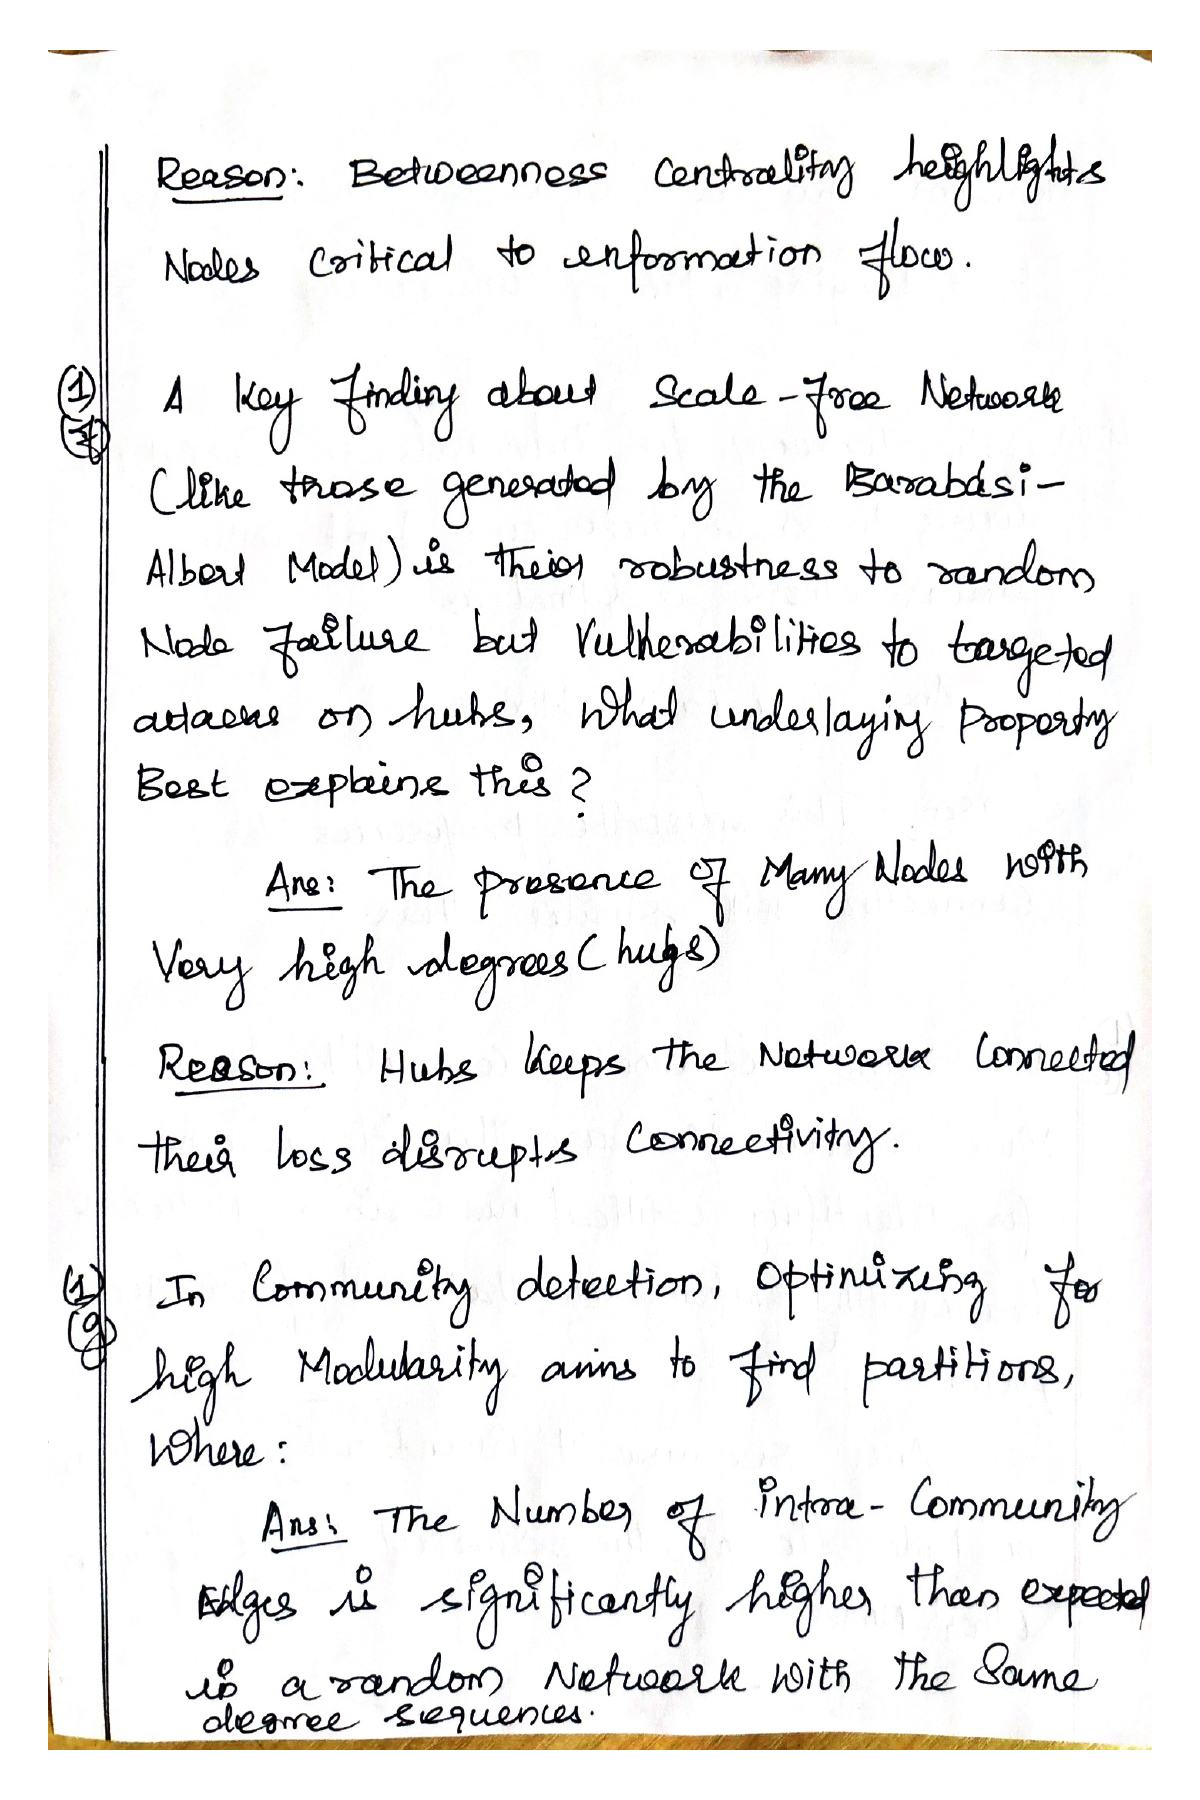 Reason: Betweenness Centrality heighlights
Nodes Critical to enformation flow.
① A key finding about Scale-free Network
(like those generated by the Barabási-
Albert Model) is their robustness to random
Node failure but Vulnerabilities to targeted
attacks on hubs, What underlaying Property
Best explains this?
Ans: The presence of Many Nodes with
Very high degrees (hubs)
Reason: Hubs keeps the Network Connected
their loss disrupts Connectivity.
① In Community detection, Optimizing for
⑨
high Modularity aims to find partitions,
Where:
Ans: The Number of intra-Community
Edges is significantly higher than expected
is a random Network with the Same
degree sequences.